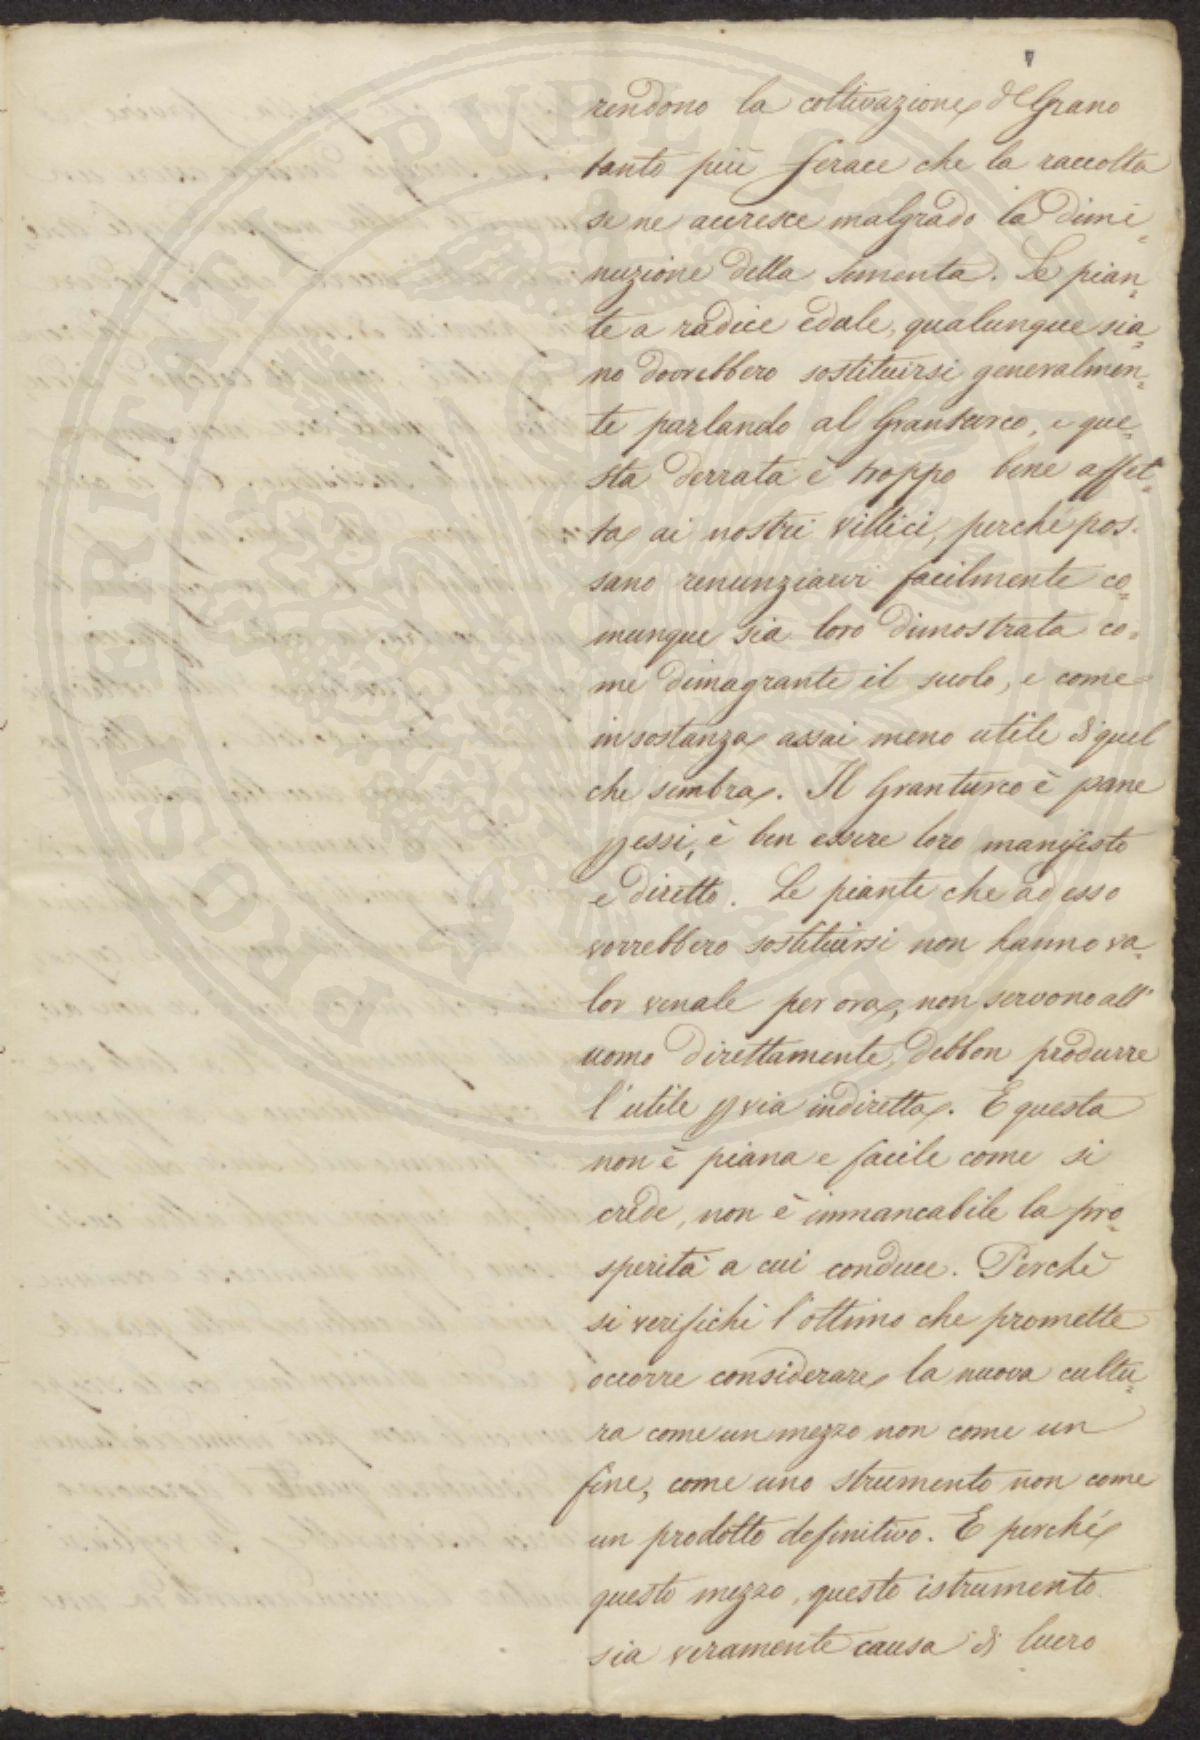 rendono la coltivazione del Grano
tanto più ferace che la raccolta
se ne accresce malgrado la dimi=
nuzione della sementa. Le pian=
te a radice edule, qualunque sia=
no dovrebbero sostituirsi generalmen=
te parlando al Granturco, e que=
sta derrata è troppo bene affet=
ta ai nostri villici, perché pos=
sano renunziarvi facilmente co=
munque sia loro dimostrata co=
me dimagrante il suolo, e come
in sostanza assai meno utile di quel
che sembra. Il Granturco è pane
p essi, è ben essere loro manifesto
e diretto. Le piante che ad esso
vorrebbero sostituirsi non hanno va=
lor venale per ora, non servono all'
uomo direttamente, debbon produrre
l'utile p via indiretta. E questa
non è piana e facile come si
crede, non è immancabile la pro=
sperità a cui conduce. Perchè
si verifichi l'ottimo che promette
occorre considerare la nuova cultu=
ra come un mezzo non come un
fine, come uno strumento non come
un prodotto definitivo. E perché
questo mezzo, questo istrumento
sia veramente causa di lucro
PROSPERITATI PVBLICAE